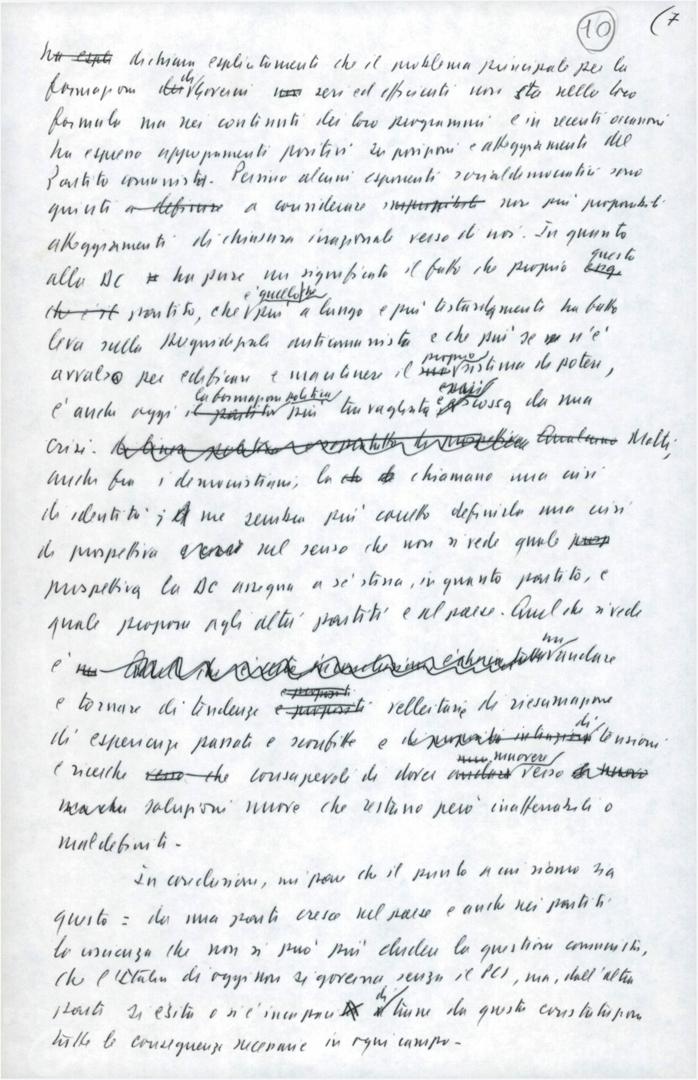 10 (7
ha dichiara esplicitamente che il problema principale per la
formazione di Governi seri ed efficienti non sta nella loro
formula ma nei contenuti dei loro programmi e in recenti occasioni
ha espresso apprezzamenti positivi su posizioni e atteggiamenti del
Partito comunista. Persino alcuni esponenti socialdemocratici sono
giunti a definire a considerare non più proponibili
atteggiamenti di chiusura irrazionale verso di noi. In quanto
alla DC ha pure un significato il fatto che proprio questo
che è il partito, che è quello che più a lungo e più testardamente ha fatto
leva sulla pregiudiziale anticomunista e che più se n'è
avvalso per edificare e mantenere il proprio sistema di potere,
è anche oggi il partito la formazione politica più travagliata e scossa da una
crisi. Molti,
anche fra i democristiani, la chiamano una crisi
di identità; a me sembra più corretto definirla una crisi
di prospettiva nel senso che non si vede quale
prospettiva la DC assegna a sé stessa, in quanto partito, e
quale propone agli altri partiti e al paese. Quel che si vede
è un andare
e tornare di tendenze e propositi velleitarie di riesumazione
di esperienze passate e sconfitte e di tensioni
e ricerche verso che consapevoli di dover andare muovere verso
soluzioni nuove che restano però inafferrabili o
mal definiti.
In conclusione, mi pare che il punto a cui siamo sia
questo: da una parte cresce nel paese e anche nei partiti
la coscienza che non si può più eludere la questione comunista,
che l'Italia di oggi non si governa senza il PCI, ma, dall'altra
parte si esita o si è incapaci di trarre da questa constatazione
tutte le conseguenze necessarie in ogni campo.